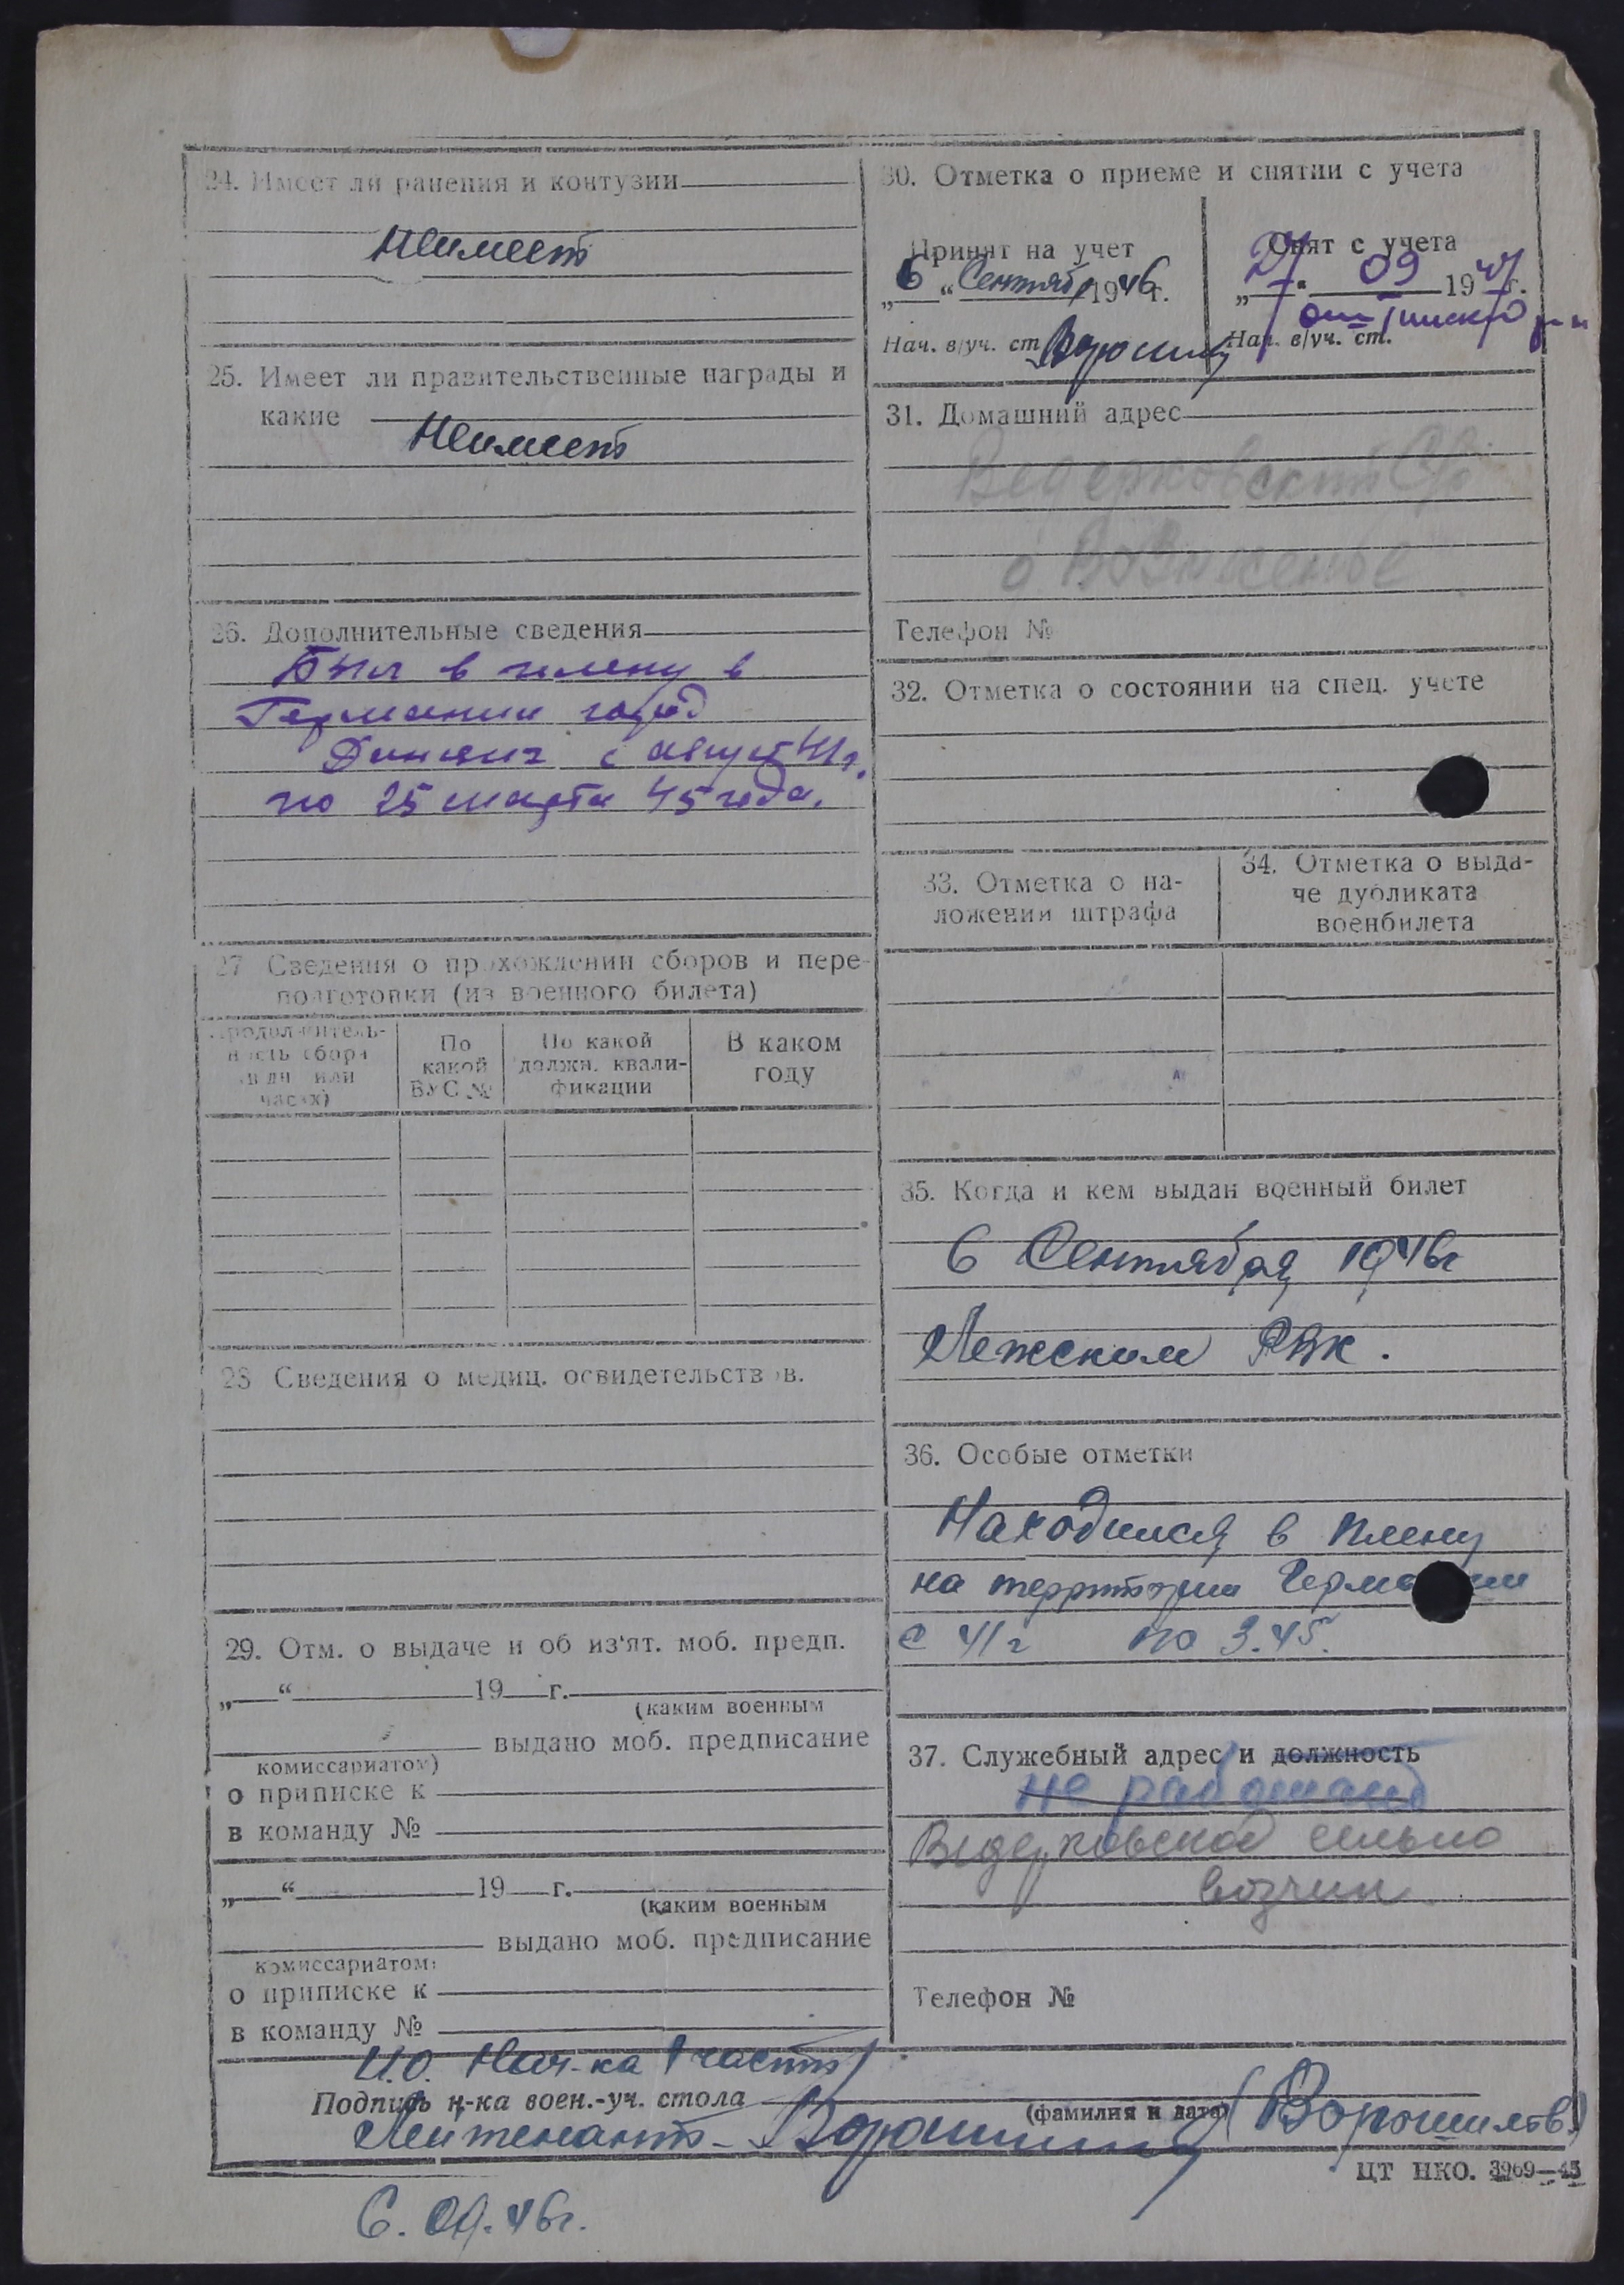 24. Имеет ли ранения и контузии
Неимеет
25. Имеет ли правительственные награды и
какие
Неимеет
26. Дополнительные сведения
Был в плену в
Германии город
с август 41 г.
по 25 марта 45 года.
27 Сведения о прохождении сборов и пере-
подготовки (из военного билета)
Продолжитель-
ность сбора
(в дн или
часах)
По
какой
ВУС №
По какой
должн. квали-
фикации
В каком
году
28 Сведения о медиц. освидетельствов.
29. Отм. о выдаче и об из'ят. моб. предп.
„ “ 19 г.
(каким военным
выдано моб. предписание
комиссариатом)
о приписке к
в команду №
„ “ 19 г.
(каким военным
выдано моб. предписание
комиссариатом)
о приписке к
в команду №
30. Отметка о приеме и снятии с учета
Принят на учет
„6“ Сентябр 1946г.
Нач. в/уч. ст.
Снят с учета
„ “ 09 1947г.
Нач. в/уч. ст.
31. Домашний адрес
Ведерковский С/с
Телефон №
32. Отметка о состоянии на спец. учете
33. Отметка о на-
ложении штрафа
34. Отметка о выда-
че дубликата
военбилета
35. Когда и кем выдан военный билет
6 Сентября 1946г
Лежским РВК.
36. Особые отметки
Находился в плену
на территории Германии
с 41г по 3.45.
37. Служебный адрес и должность
не работает
Ведерковское сельпо
возчик
Телефон №
И.О. Нач-ка 1 части
Подпись н-ка воен.-уч. стола
(фамилия и дата)
Лейтенант- (Ворошилов)
ЦТ НКО. 3969—45
6.09.46г.